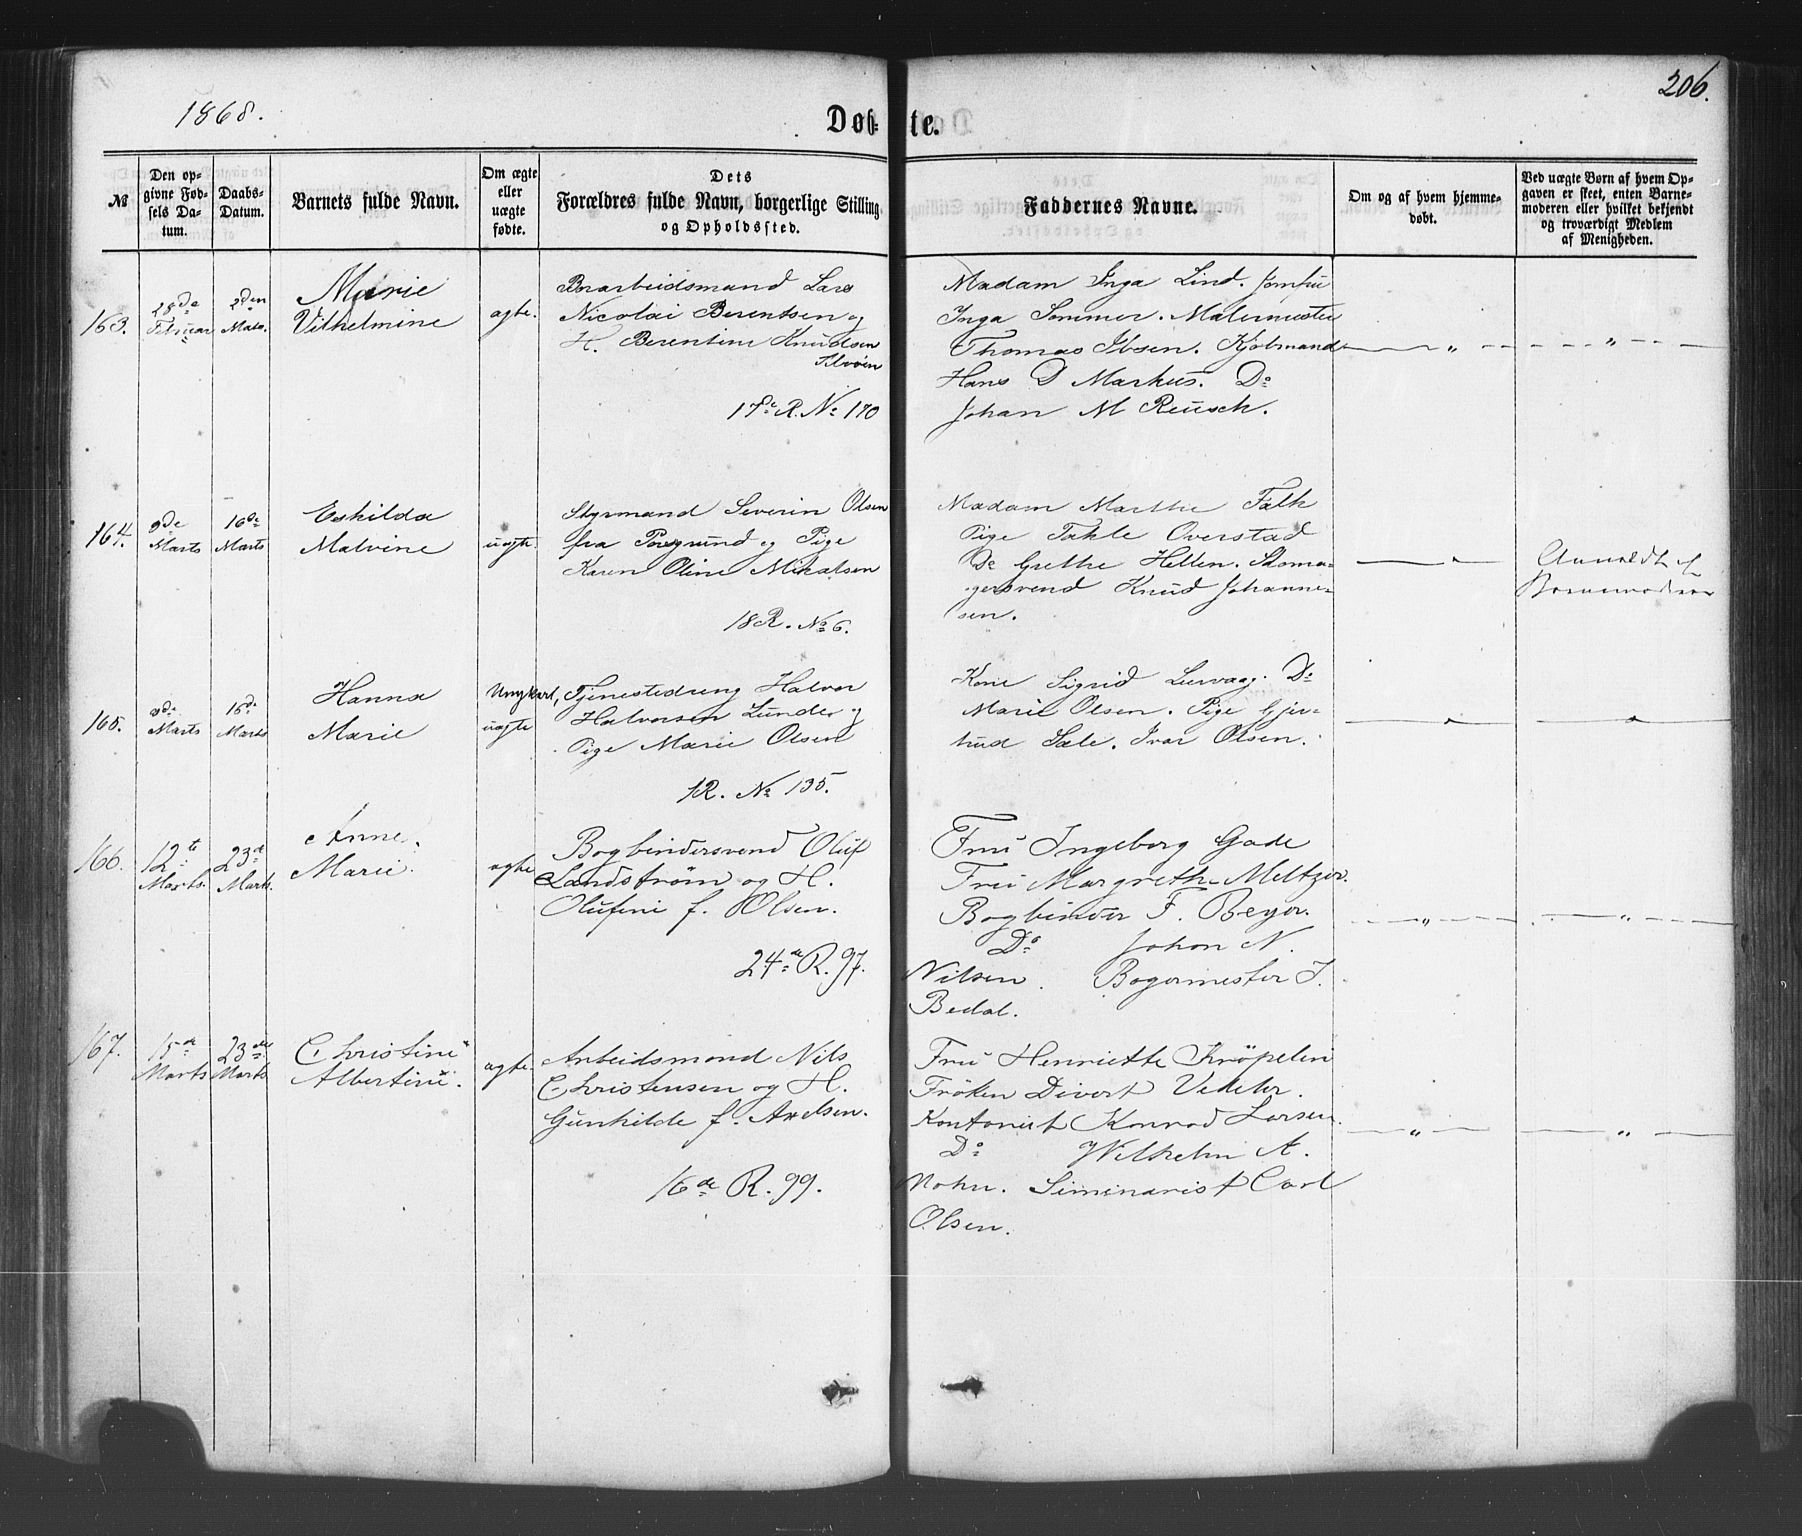 1868.
Døb-
te.
206.
№
Den op-
givne Fød-
sels Da-
tum.
Daabs-
Datum.
Barnets fulde Navn.
Om ægte
eller
uægte
fødte.
Dets
Forældres fulde Navn, borgerlige Stilling
og Opholdssted.
Faddernes Navne.
Om og af hvem hjemme-
døbt.
Ved uægte Børn af hvem Op-
gaven er skeet, enten Barne-
moderen eller hvilket bekjendt
og troværdigt Medlem
af Menigheden.
163.
28de
Februar
2den
Marts.
Marie
Vilhelmine
ægte.
Borarbeidsmand Lars
Nicolai Berentsen og
H. Berentine Knudsen
17de R. No 170
Madam Inga Lind. Jomfru
Inga Sommer. Malermester
Thomas Ibsen. Kjøbmand
Hans D Markus. Do
Johan M Reusch.
164.
9de
Marts
16de
Marts
Eshilda
Malvine
uægte.
Styrmand Severin Olsen
fra Porsgrund og Pige
Karen Oline Mikalsen
18 R. No 6.
Madam Marthe Falk
Pige Takle Overstad
Do Grethe Hellen. Skoma-
gersvend Knud Johanne-
sen.
Anmeldt af
165.
Marts
16de
Marts
Hanna
Marie
Ungkarl,
uægte
Tjenestedreng Halvor
Halvorsen Lunde og
Pige Marie Olsen
1 R. No 135.
Kone Sigrid Lervaag. Do
Marie Olsen. Pige Gjer-
trud Sæle. Ivar Olsen.
166.
12te
Marts.
23de
Marts.
Anne
Marie.
ægte
Bogbindersvend Oluf
Landstrøm og H.
Olufine f. Olsen.
24de R. 97.
Fru Ingeborg Gade
Fru Margrethe Meltzer.
Bogbinder F. Beyer.
Do Johan N.
Nilsen. Bagermester J.
Bedal.
167.
15de
Marts
23de
Marts
Christine
Albertine.
ægte.
Arbeidsmand Nils
Christensen og H.
Gunhilde f. Axelsen.
16de R. 99.
Fru Henriette Krøpelin
Frøken Divert
Kontorist Konrad Larsen.
Do Wilhelm A.
Mohn. Siminarist Carl
Olsen.